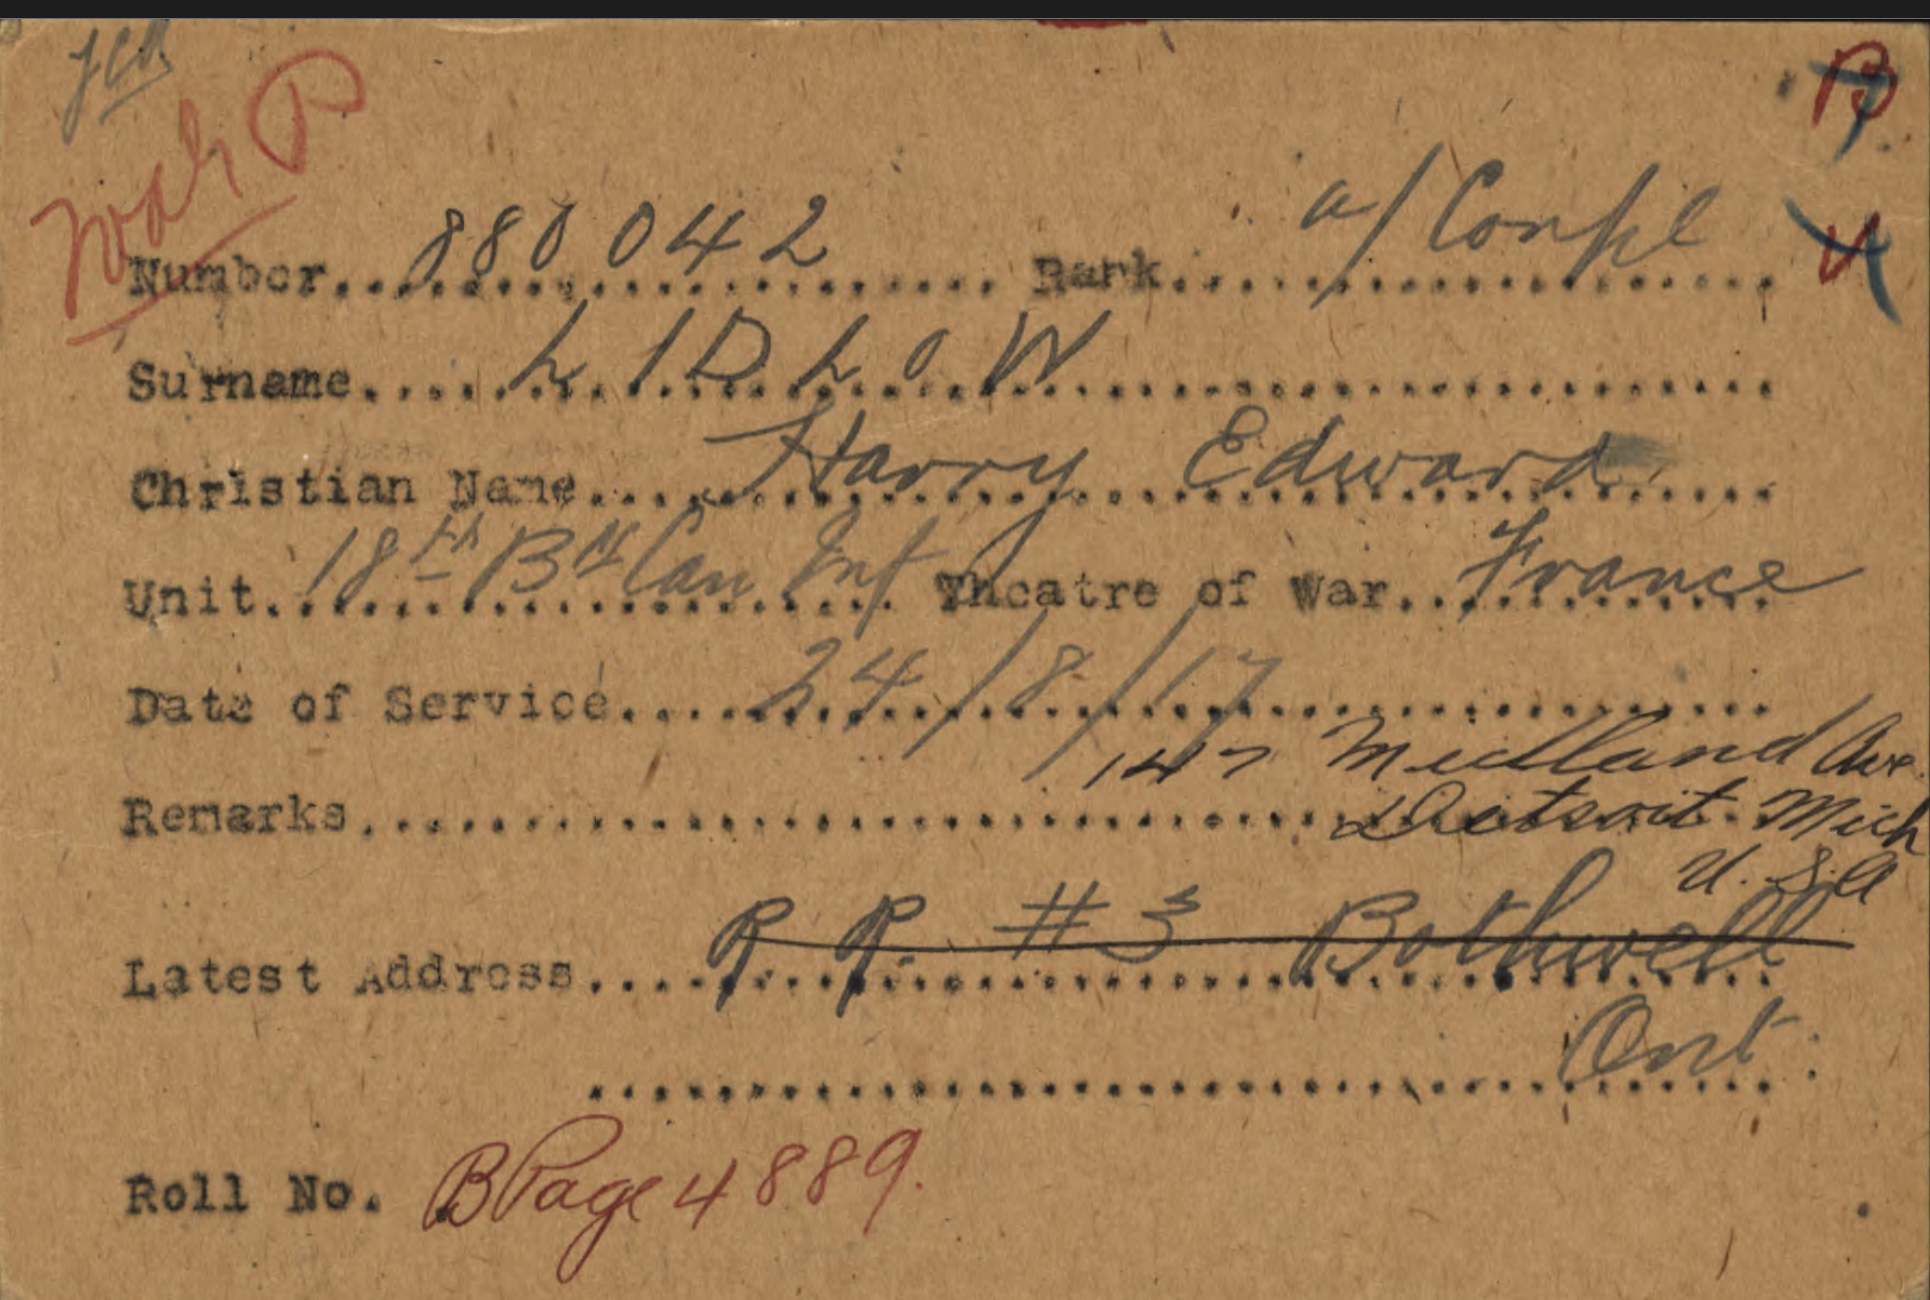 B
V
Number 880042 Rank a/Corpl
Surname LIDLOW
Christian Name Harry Edward
Unit 18th Bn Can Inf Theatre of War France
Date of Service 24/8/17
147 Midland Ave
Remarks Detroit Mich
U.S.A
Latest Address R R. #3 Bothwell
Ont.
Roll No. B Page 4889.